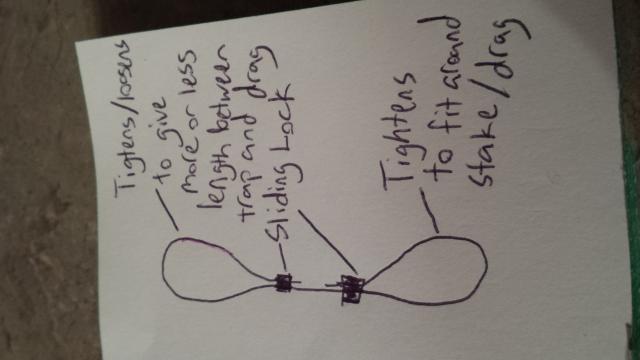 Tigtens/loosens
to give
more or less
length between
trap and drag
Sliding Lock
Tightens
to fit around
stake/drag